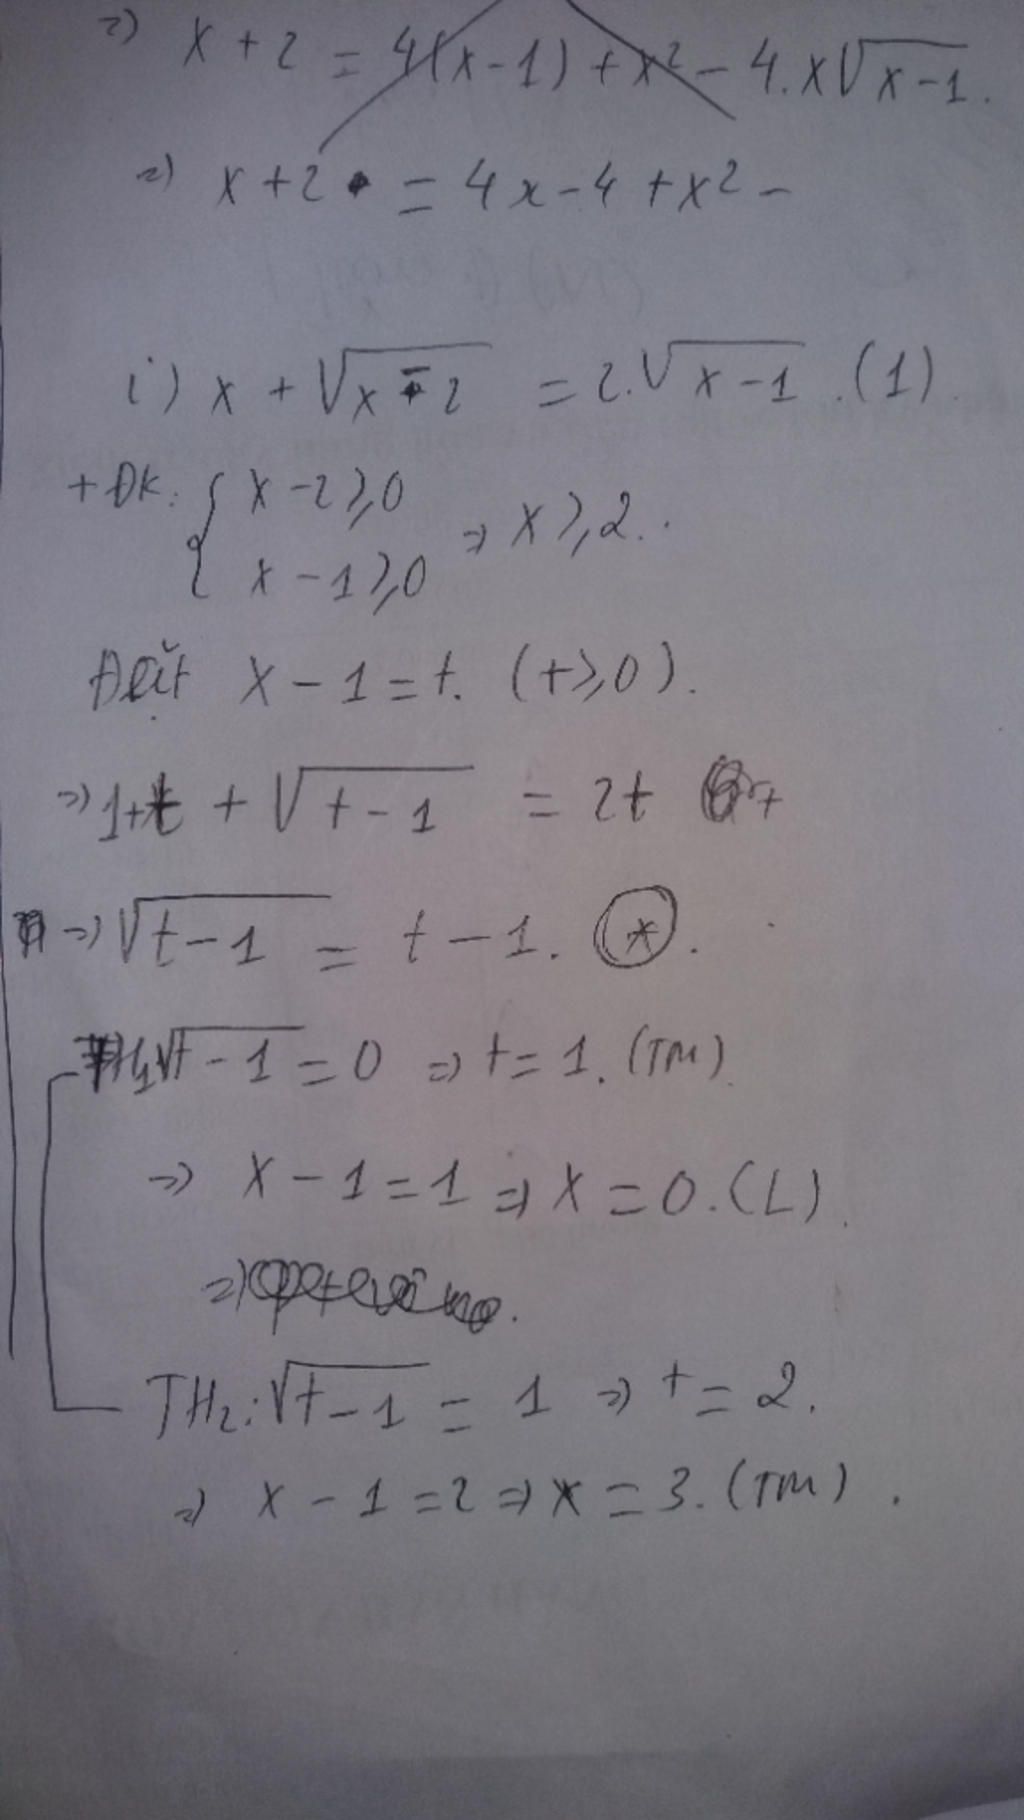 =) x + 2 = 4(x-1) + x² - 4.x√(x-1).
=) x + 2 = 4x - 4 + x² -
i) x + √(x-2) = 2.√(x-1) .(1).
+ ĐK: { x - 2 ≥ 0
x - 1 ≥ 0 => x ≥ 2.
Đặt x - 1 = t. (t ≥ 0).
=) 1+t + √(t-1) = 2t
=) √(t-1) = t - 1. (*).
TH1 √(t-1) = 0 => t = 1. (TM).
=) x - 1 = 1 => x = 0. (L).
=)
TH2: √(t-1) = 1 => t = 2.
=) x - 1 = 2 => x = 3. (TM).